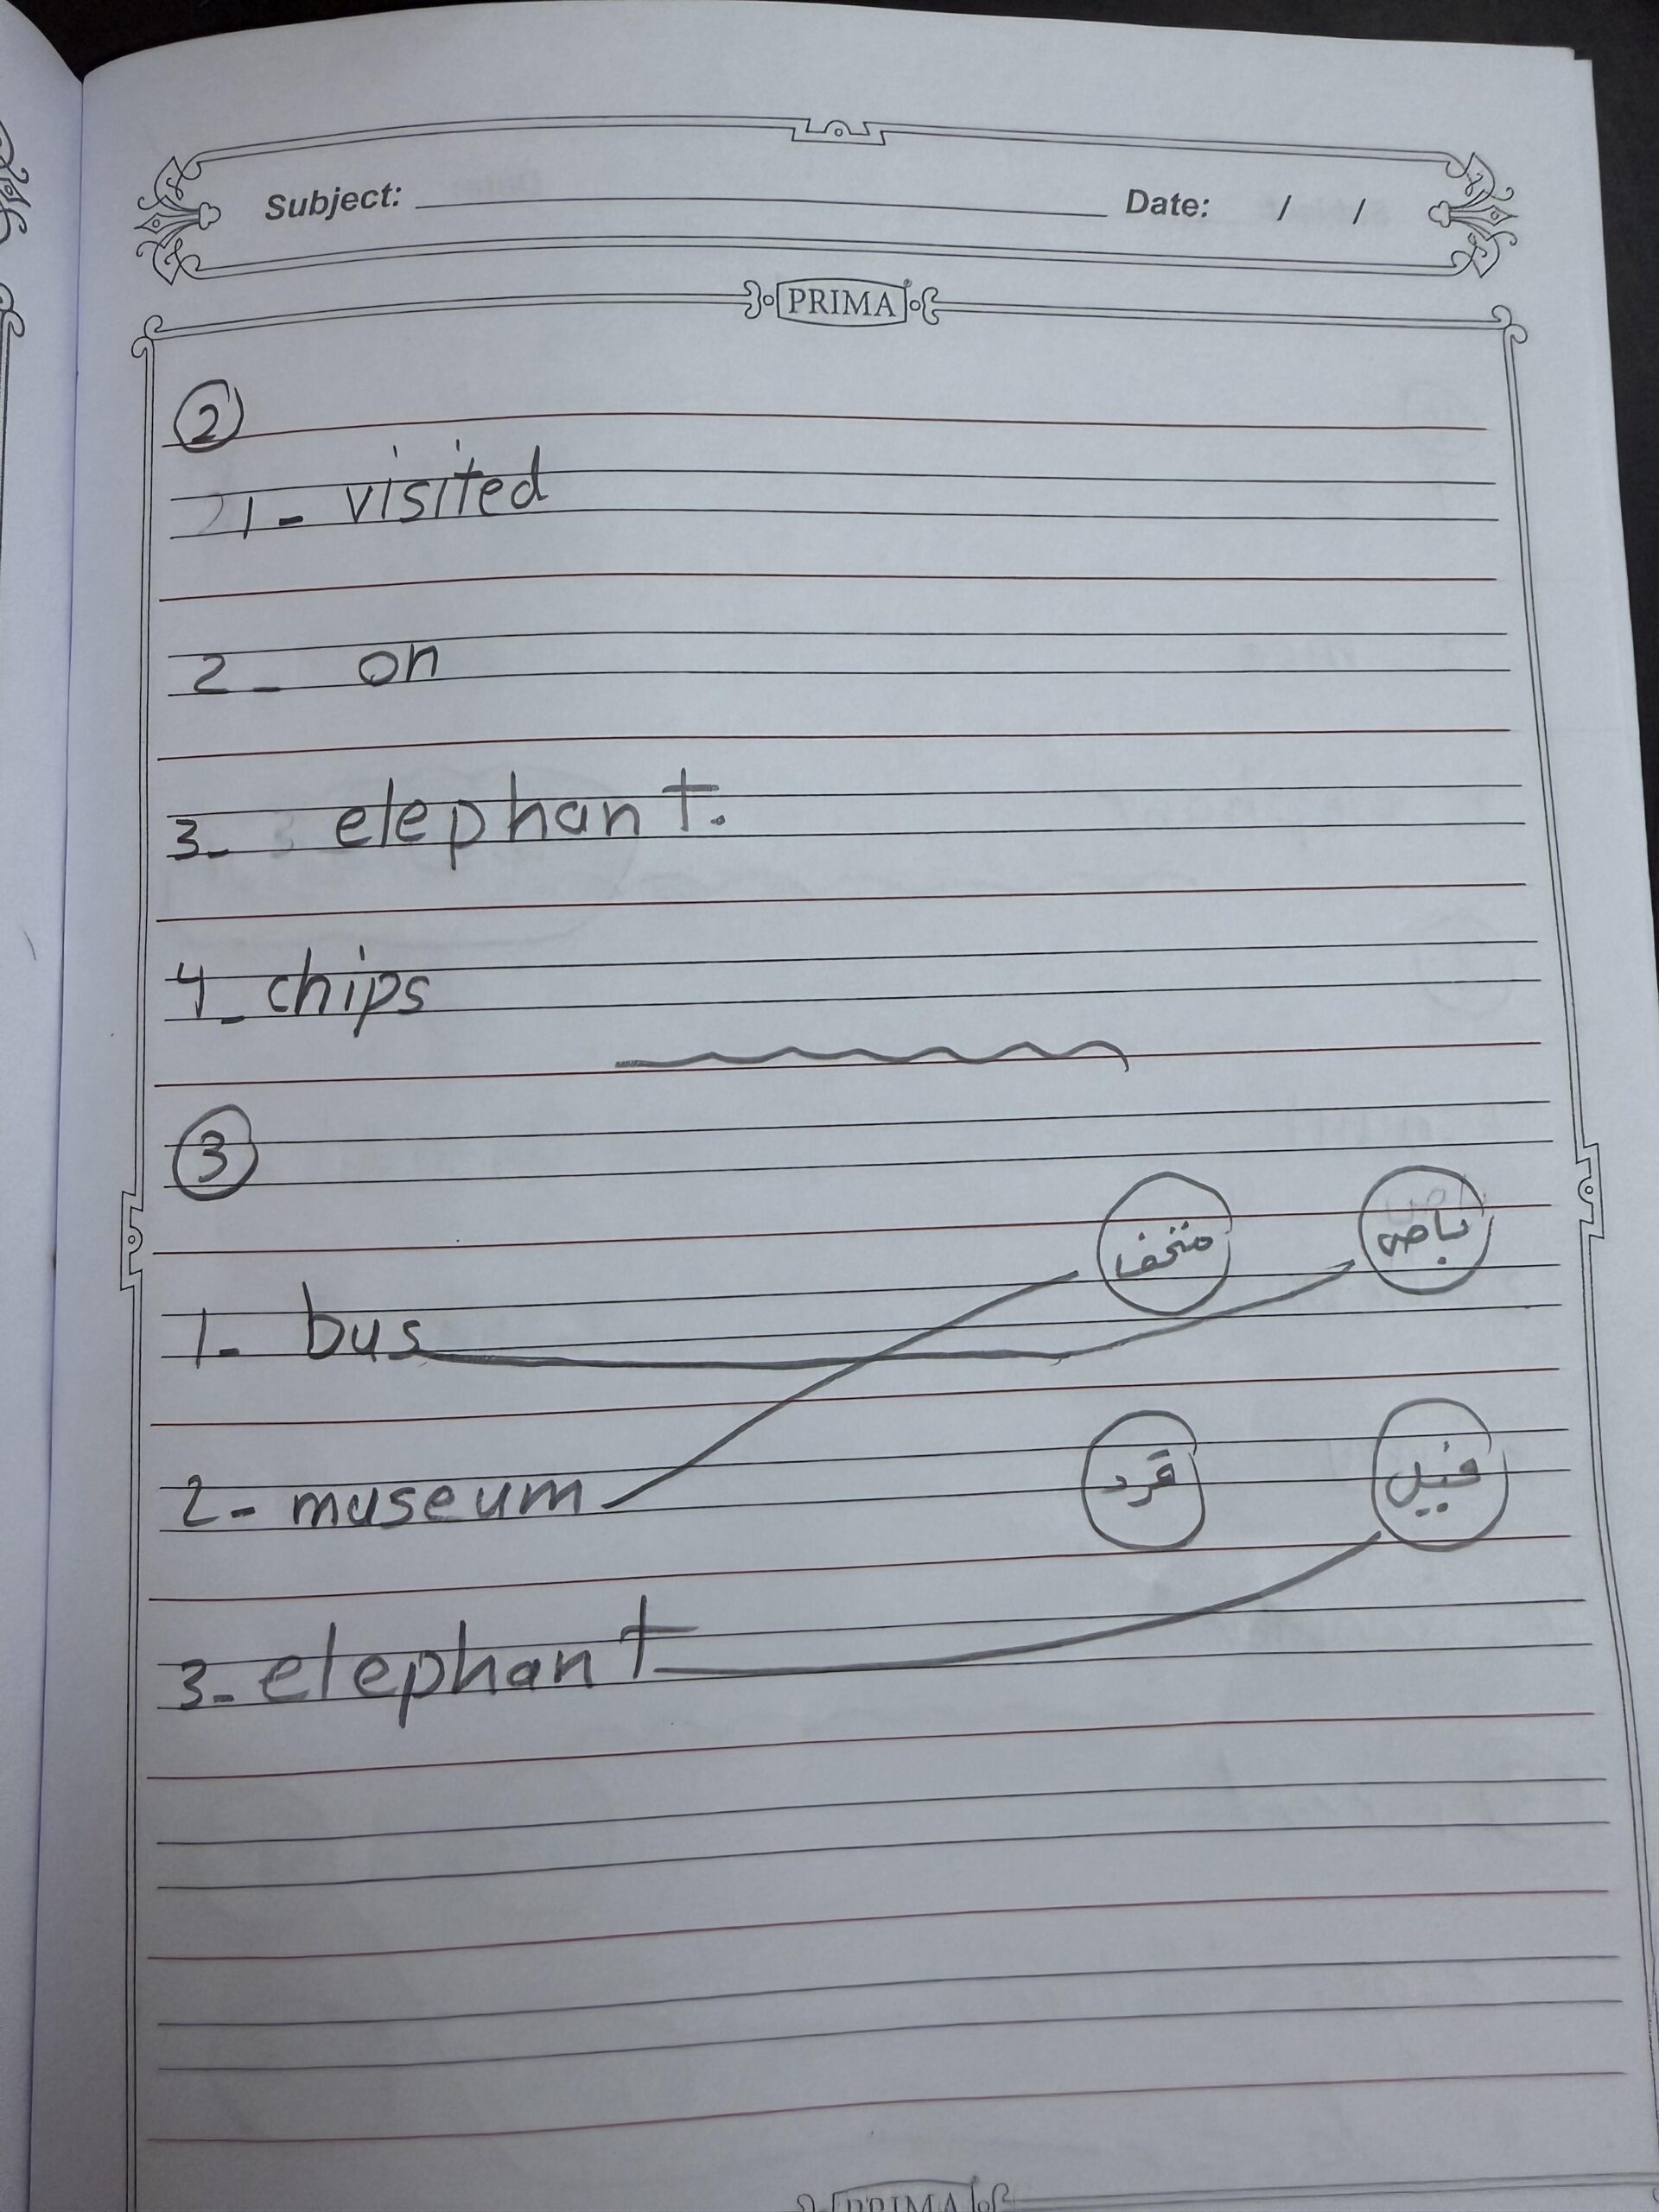 Subject: Date: / /
PRIMA
2
1- visited
2- on
3- elephant.
4- chips
3
متحف باص
1- bus
2- museum
قرد فيل
3- elephant
PRIMA